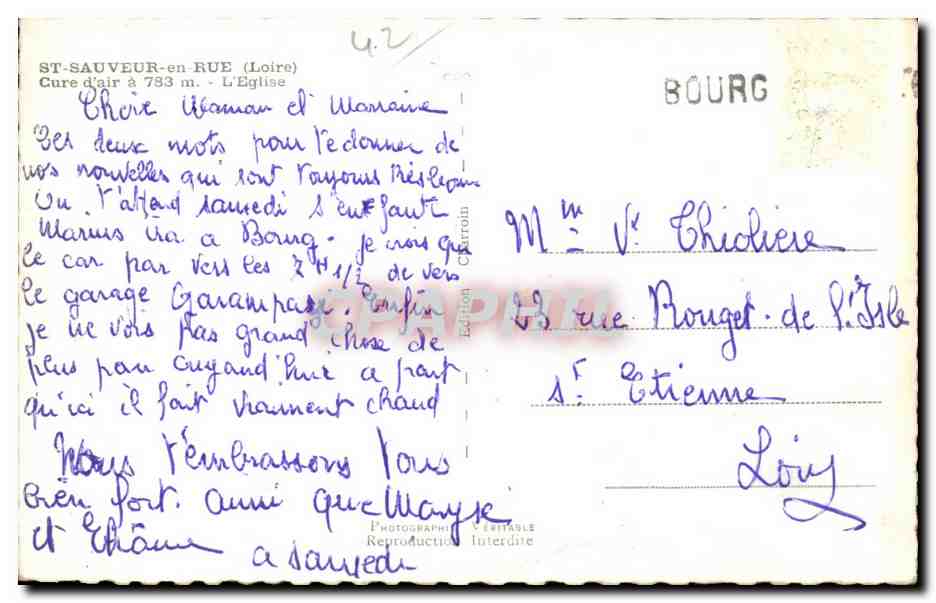 42
ST-SAUVEUR-en-RUE (Loire)
Cure d'air à 783 m. - L'Eglise
BOURG
Chère Maman et Marraine
Ces deux mots pour te donner de
nos nouvelles qui sont toujours très bonn
On t'attend samedi s'en faut
Marius ira a Bourg. je crois que
le car par vers les 7 H 1/2 de vers
le garage Enfin
je ne vois pas grand chose de
plus pour aujourd'hui a part
qu'ici il fait vraiment chaud
Nous t'embrassons tous
bien fort. aussi que Maryse
et
a samedi
Edition Charroin
PHOTOGRAPHIE VÉRITABLE
Reproduction Interdite
Mme Ve Thiolière
23 rue Rouget-de l'Isle
St Etienne
Loire
CPAPHIL